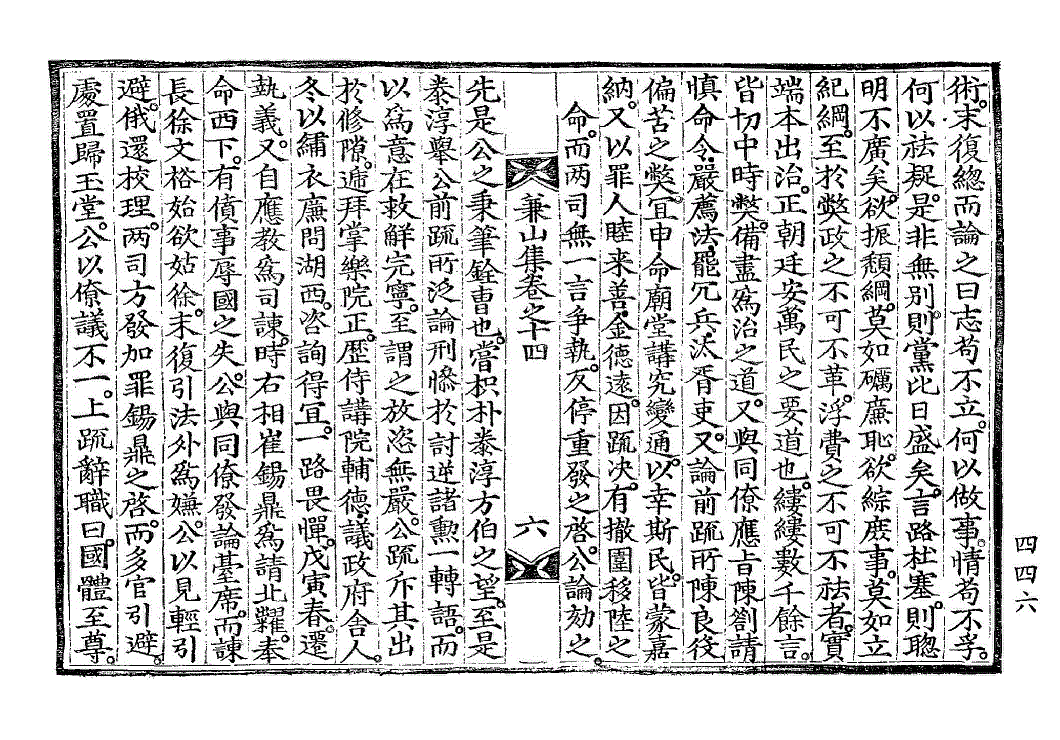 術。末復總而論之曰志苟不立。何以做事。情苟不孚。
何以祛疑。是非無別。則黨比日盛矣。言路杜塞。則聰
明不廣矣。欲振頹綱。莫如礪廉恥。欲綜庶事。莫如立
紀綱。至於弊政之不可不革。浮費之不可不祛者。實
端本出治。正朝廷安萬民之要道也。縷縷數千餘言。
皆切中時弊。備盡爲治之道。又與同僚應旨陳劄。請
愼命令。嚴薦法。罷冗兵。汰胥吏。又論前疏所陳良役
偏苦之弊。宜申命廟堂講究變通。以幸斯民。皆蒙嘉
納。又以罪人睦來善,金德遠。因疏决。有撤圍移陸之
命。而兩司無一言爭執。反停重發之啓。公論劾之
兼山集卷之十四
六
先是公之秉筆銓曹也。嘗枳朴泰淳方伯之望。至是
泰淳擧公前疏所泛論刑慘於討逆諸勳一轉語。而
以爲意在救解完寧。至謂之放恣無嚴。公疏斥其出
於修隙。遞拜掌樂院正。歷侍講院輔德,議政府舍人。
冬以繡衣廉問湖西。咨詢得宜。一路畏憚。戊寅春。遷
執義。又自應敎爲司諫。時右相崔錫鼎爲請北糴。奉
命西下。有僨事辱國之失。公與同僚發論臺席。而諫
長徐文裕始欲姑徐。末復引法外爲嫌。公以見輕引
避。俄還校理。兩司方發加罪錫鼎之啓。而多官引避。
處置歸玉堂。公以僚議不一。上疏辭職曰。國體至尊。
四四六